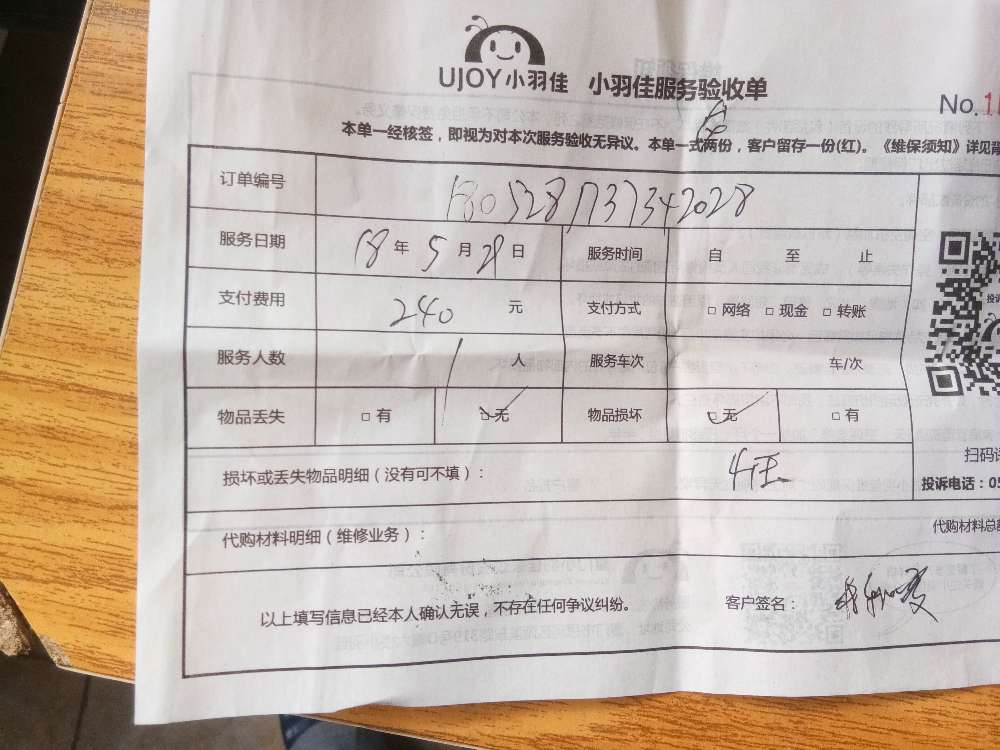 UJOY小羽佳 小羽佳服务验收单
No.1
本单一经核签，即视为对本次服务验收无异议。本单一式两份，客户留存一份(红)。《维保须知》详见背
订单编号 1805281737342028
服务日期 18 年 5 月 29 日 服务时间 自 至 止
支付费用 240 元 支付方式 □ 网络 □ 现金 □ 转账
服务人数 1 人 服务车次 车/次
物品丢失 □ 有 □ 无 物品损坏 □ 无 □ 有
扫码
损坏或丢失物品明细（没有可不填）：
投诉电话：05
代购材料明细（维修业务）： 代购材料总额
以上填写信息已经本人确认无误，不存在任何争议纠纷。 客户签名：